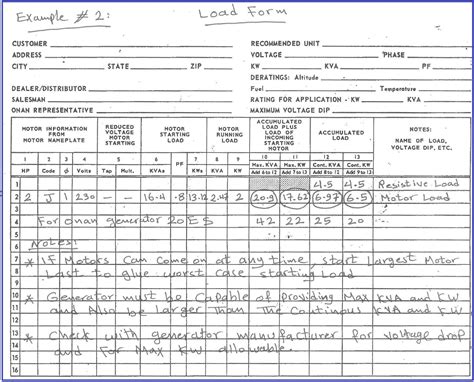 Example # 2:
Load Form
CUSTOMER
ADDRESS
CITY STATE ZIP
DEALER/DISTRIBUTOR
SALESMAN
ONAN REPRESENTATIVE
RECOMMENDED UNIT
VOLTAGE PHASE
KW KVA PF
DERATINGS: Altitude
Fuel Temperature
RATING FOR APPLICATION - KW KVA
MAXIMUM VOLTAGE DIP
MOTOR INFORMATION FROM MOTOR NAMEPLATE
REDUCED VOLTAGE MOTOR STARTING
MOTOR STARTING LOAD
PF
MOTOR RUNNING LOAD
ACCUMULATED LOAD PLUS LOAD OF INCOMING STARTING MOTOR
ACCUMULATED LOAD
NOTES:
NAME OF LOAD, VOLTAGE DIP, ETC.
1 2 3 4 5 6 7 8 9 10 11 12 13
HP Code ϕ Volts Tap Mult. KVAs KWs KVA KW
Max. KVA Max. KW Cont. KVA Cont. KW
Add 6 to 12 Add 7 to 13 Add 8 to 12 Add 9 to 13
1 4.5 4.5 Resistive Load
2 2 J 1 230 - - 16.4 .8 13.12 2.47 2 20.9 17.62 6.97 6.5 Motor Load
3
4 For onan generator 20ES 42 22 25 20
5
6 Notes:
7 * IF Motors Can come on at any time, start Largest Motor
8 Last to give worst case starting Load
9
10 * Generator must be Capable of providing Max KVA and KW
11 and Also be larger than The Continous KVA and KW
12
13 * Check with generator manufacturer for voltage drop
14 and For Max KW allowable.
15
16